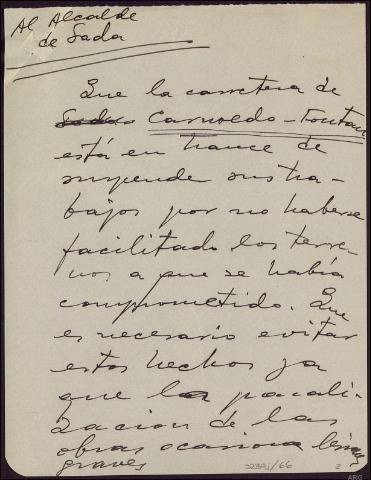 Al Alcalde
de Sada
Que la carretera de
Sada Carnoedo - Fontan
está en trance de
suspender sus tra-
bajos por no haberse
facilitado los terre
nos a que se había
comprometido. Que
es necesario evitar
estos hechos ya
que la parali-
zación de las
obras ocasiona
graves
2
ARG